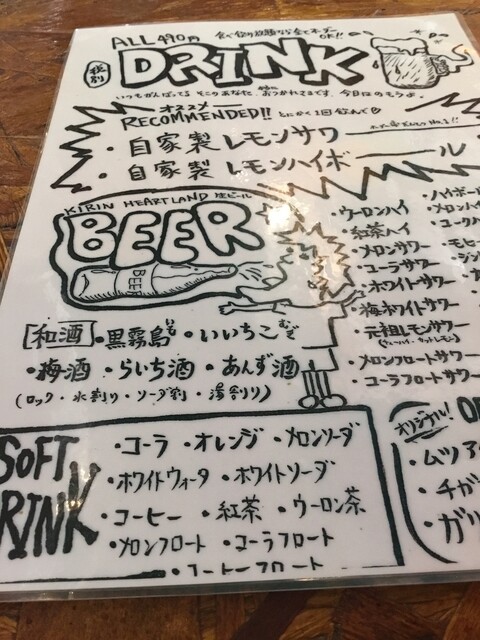 ALL 490円
税別
DRINK
いつもがんばってるそこのあなた、おつかれさまです。今日はのもうよ。
オススメ
RECOMMENDED!! とにかく1回飲んで
・自家製レモンサワー
・自家製レモンハイボール
KIRIN HEARTLAND 生ビール
BEER
BEER
[和酒]・黒霧島いも・いいちこむぎ
・梅酒・らいち酒・あんず酒
(ロック・水割り・ソーダ割・湯割り)
・ウーロンハイ
・紅茶ハイ
・メロンサワー
・コーラサワー
・ホワイトサワー
・梅ホワイトサワー
・元祖レモンサワー
・メロンフロートサワー
・コーラフロートサワー
・ハイボー
・メロンハイ
・コークハ
・モヒー
・ジン
オリジナル!
・ムツア
・チガ
・ガリ
SOFT
DRINK
・コーラ ・オレンジ ・メロンソーダ
・ホワイトウォータ ・ホワイトソーダ
・コーヒー ・紅茶 ・ウーロン茶
・メロンフロート ・コーラフロート
・コーヒーフロート